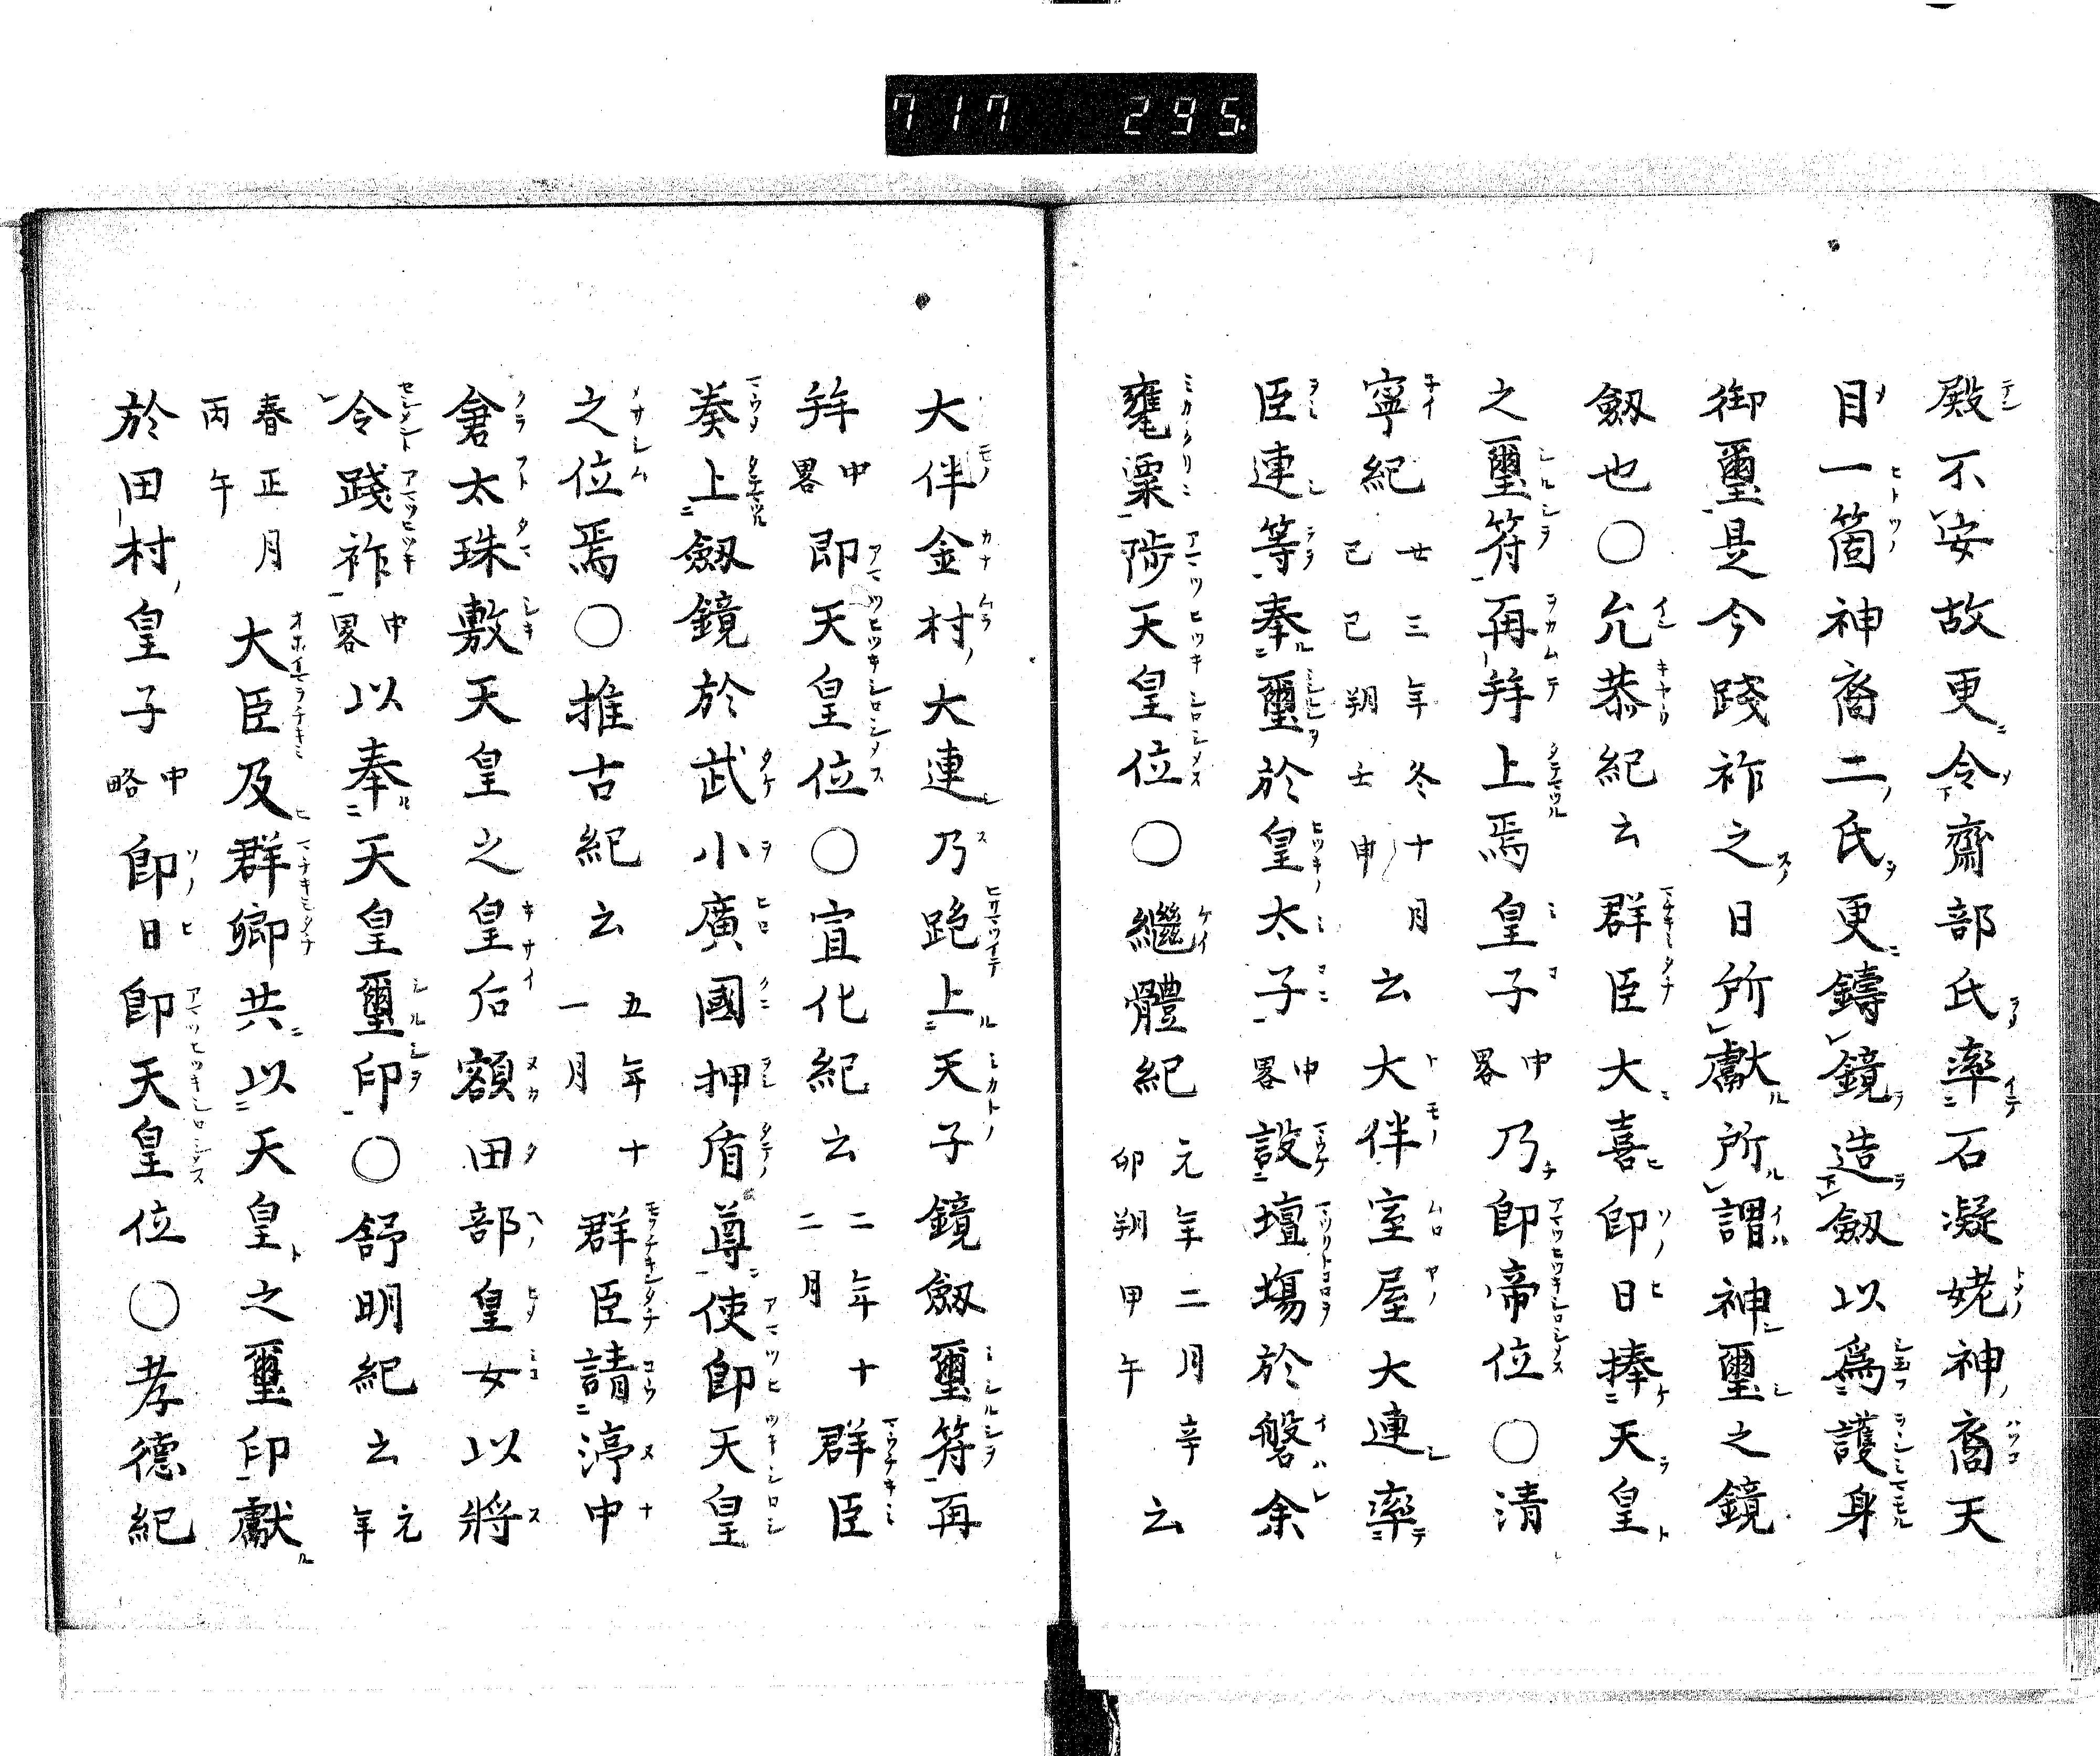 717 295.
殿不安故更令齋部氏率石凝姥神裔天
目一箇神裔二氏更鑄鏡造劔以爲護身
御璽是今踐祚之日所獻所謂神璽之鏡
劔也〇允恭紀云群臣大喜即日捧天皇
之璽符再拜上焉皇子中畧乃即帝位〇清
寧紀廿三年冬十月己巳朔壬申云大伴室屋大連率
臣連等奉璽於皇太子中畧設壇場於磐余
甕栗陟天皇位〇繼體紀元年二月辛卯朔甲午云
大伴金村大連乃跪上天子鏡劔璽符再
拜中畧即天皇位〇宣化紀云二年十二月群臣
奏上劔鏡於武小廣國押盾尊使即天皇
之位焉〇推古紀云五年十一月群臣請渟中
倉太珠敷天皇之皇后額田部皇女以將
令踐祚中畧以奉天皇璽印〇舒明紀云元年
春正月丙午大臣及群卿共以天皇之璽印獻
於田村皇子中略即日即天皇位〇孝德紀